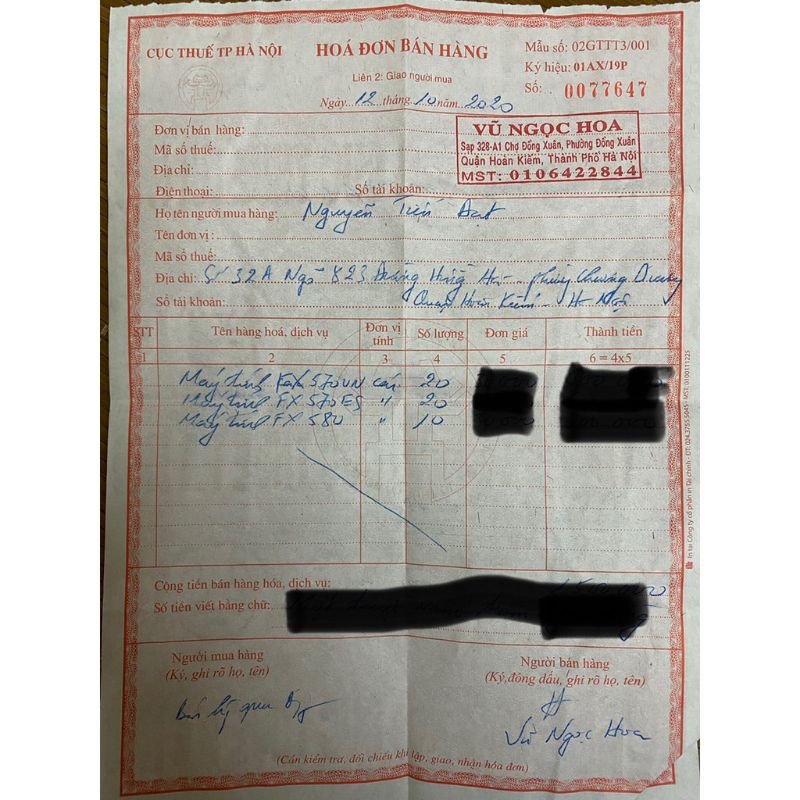 CỤC THUẾ TP HÀ NỘI
HOÁ ĐƠN BÁN HÀNG
Liên 2: Giao người mua
Ngày 12 tháng 10 năm 2020
Mẫu số: 02GTTT3/001
Ký hiệu: 01AX/19P
Số: 0077647
Đơn vị bán hàng:
Mã số thuế:
Địa chỉ:
Điện thoại: Số tài khoản:
VŨ NGỌC HOA
Sạp 328-A1 Chợ Đồng Xuân, Phường Đồng Xuân
Quận Hoàn Kiếm, Thành Phố Hà Nội
MST: 0106422844
Họ tên người mua hàng: Nguyễn Tiến Đạt
Tên đơn vị:
Mã số thuế:
Địa chỉ: Số 32A Ngõ 823 Hồng Hà - phường Chương Dương
Số tài khoản: Quận Hoàn Kiếm - Hà Nội
STT Tên hàng hoá, dịch vụ Đơn vị tính Số lượng Đơn giá Thành tiền
1 2 3 4 5 6 = 4x5
Máy tính FX 570VN cái 20
Máy tính FX 570ES " 20
Máy tính FX 580 " 10
Cộng tiền bán hàng hóa, dịch vụ:
Số tiền viết bằng chữ:
Người mua hàng
(Ký, ghi rõ họ, tên)
Bán hàng qua
Người bán hàng
(Ký, đóng dấu, ghi rõ họ, tên)
Vũ Ngọc Hoa
(Cần kiểm tra, đối chiếu khi lập, giao, nhận hóa đơn)
In tại Công ty cổ phần in Tài chính - ĐT: 024.3755 5045 - MST: 0100111225